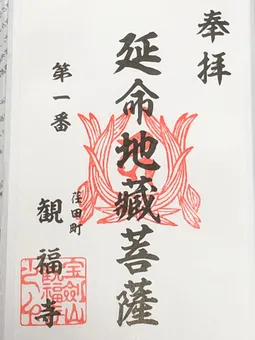 奉拝
延命地藏菩薩
第一番
荏田町
観福寺
宝剣山
観福